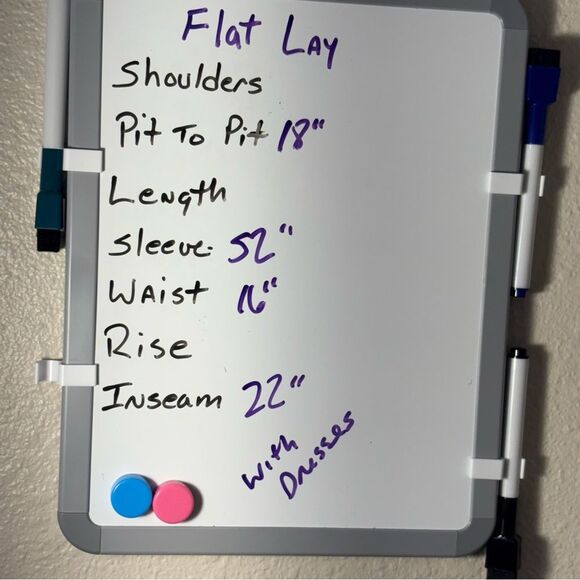 Flat Lay
Shoulders
Pit To Pit 18"
Length
Sleeve 52"
Waist 16"
Rise
Inseam 22"
With
Dresses